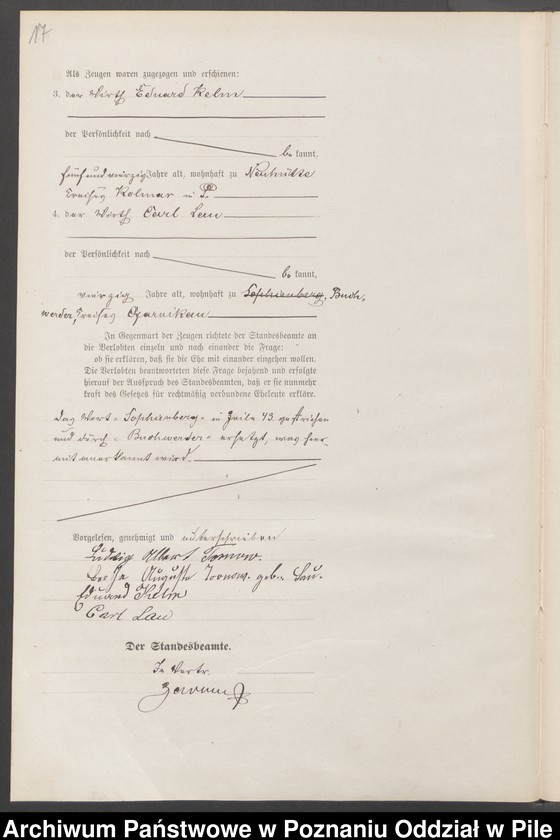 17
Als Zeugen waren zugezogen und erschienen:
3. der Wirth Eduard Kelm
der Persönlichkeit nach
be kannt,
fünfundvierzig Jahre alt, wohnhaft zu Neuhütte
Kreises Kolmar i. P.
4. der Wirth Carl Lau
der Persönlichkeit nach
be kannt,
vierzig Jahre alt, wohnhaft zu Sophienberg, Buch-
werder, Kreises Czarnikau
In Gegenwart der Zeugen richtete der Standesbeamte an
die Verlobten einzeln und nach einander die Frage:
ob sie erklären, daß sie die Ehe mit einander eingehen wollen.
Die Verlobten beantworteten diese Frage bejahend und erfolgte
hierauf der Ausspruch des Standesbeamten, daß er sie nunmehr
kraft des Gesetzes für rechtmäßig verbundene Eheleute erkläre.
Das Wort "Sophienberg" in Zeile 43 gestrichen
und durch "Buchwerder" ersetzt, was hier-
mit anerkannt wird.
Vorgelesen, genehmigt und unterschrieben
Ludwig Albert Tornow.
Auguste Tornow. geb. Lau.
Eduard Kelm
Carl Lau
Der Standesbeamte.
In Vertr.
Archiwum Państwowe w Poznaniu Oddział w Pile